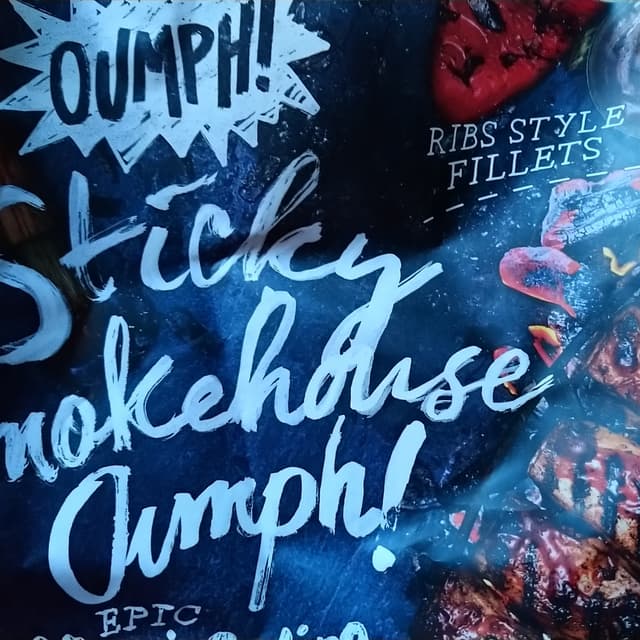 OUMPH!
RIBS STYLE
FILLETS
Sticky
mokehouse
Oumph!
EPIC